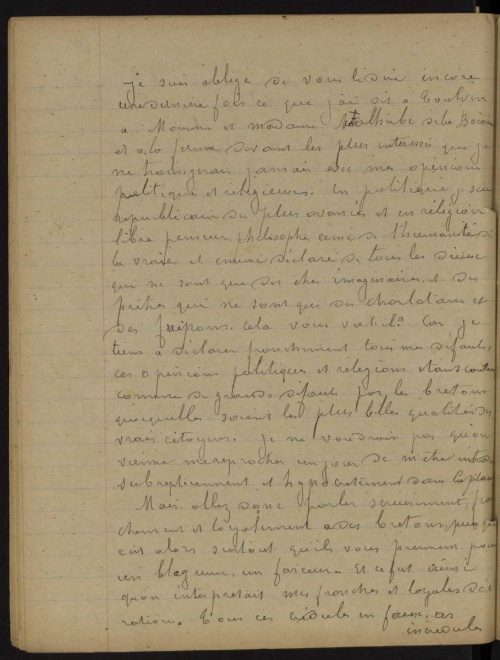 je suis oblige de vous lis dire encore
une derniere fois ce que j'ai dit a Toulven
a Monsieur et madame Malherbe de la Boixière
et a la ferme devant les plus interessés que je
ne transigerais jamais avec mes opinions
politique et religieuses. En politique je suis
republicain du plus avancés et en religion
libre penseur, philosophe ami de l'humanité
la vraie et ennemi déclaré de tous les dieux
qui ne sont que des etres imaginaires, et des
prêtres qui ne sont que des charlatans et
des fripons. Cela vous vat-il? Car je
tiens a déclarer franchement tous mes defauts,
ces opinions politiques et religions etant
comme de grands defauts par les bretons
quoiqu'elles soient les plus belles qualités des
vrais citoyens. Je ne voudrais pas qu'on
vienne me reprocher un jour de m'etre
subrepticement et hypocritement dans la place
Mais allez donc parler serieusement,
chement et loyalement a des bretons,
c'est alors surtout qu'ils vous prennent pour
un blagueur, un farceur. Et ce fut ainsi
qu'on interpretait mes franches et loyales décla
ration. Tous ces credules en faux, ces
incredules